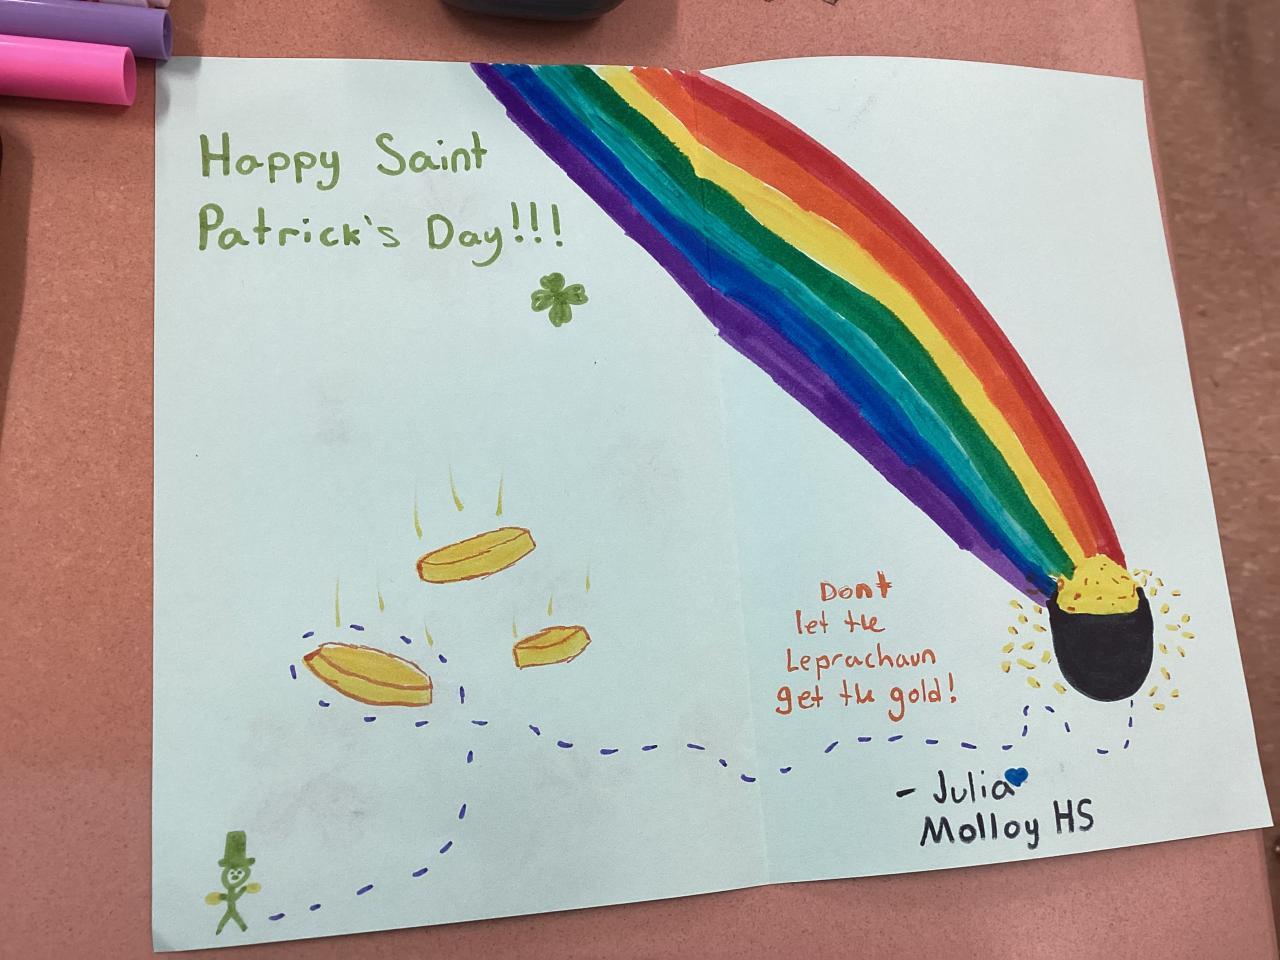 Happy Saint
Patrick's Day!!!
Dont
let the
Leprachaun
get the gold!
- Julia
Molloy HS